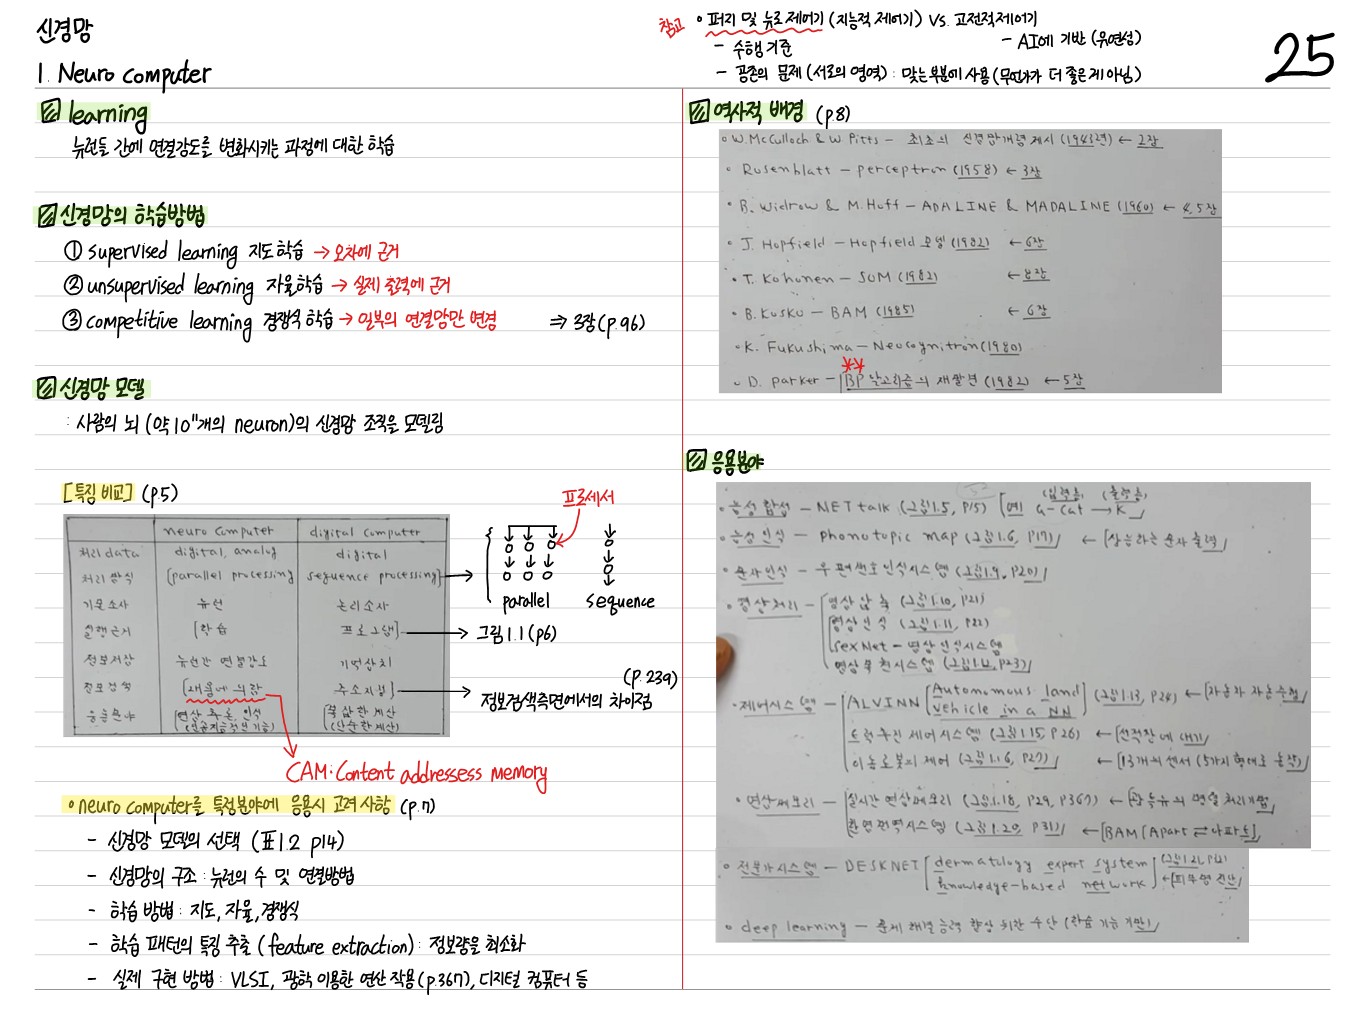 신경망
1. Neuro computer
참고 ◦ 퍼지 및 뉴로 제어기 (지능적 제어기) VS. 고전적 제어기
- 수행 기준
- AI에 기반 (유연성)
- 공존의 문제 (서로의 영역) : 맞는 부분에 사용 (무언가가 더 좋은게 아님)
25
learning
뉴런들 간에 연결강도를 변화시키는 과정에 대한 학습
신경망의 학습방법
① supervised learning 지도학습 → 오차에 근거
② unsupervised learning 자율학습 → 실제 출력에 근거
③ competitive learning 경쟁식 학습 → 일부의 연결망만 변경 ⇒ 3장(p.96)
신경망 모델
: 사람의 뇌 (약 10¹¹개의 neuron)의 신경망 조직을 모델링
[특징 비교] (p.5)
neuro computer digital computer
처리 data digital, analog digital
처리 방식 [parallel processing sequence processing]
기본소자 뉴런 논리소자
실행근거 [학습 프로그램] → 그림 1.1 (p6)
정보저장 뉴런간 연결강도 기억장치
정보검색 [내용에 의함 주소지정] → 정보검색측면에서의 차이점 (p.239)
응용분야 [연상 추론, 인식 [복잡한 계산
(인공지능적인 기능) (단순한 계산)
프로세서
parallel sequence
CAM : Content addressess memory
◦ neuro computer를 특정분야에 응용시 고려 사항 (p.7)
- 신경망 모델의 선택 (표1.2 p14)
- 신경망의 구조 : 뉴런의 수 및 연결방법
- 학습 방법 : 지도, 자율, 경쟁식
- 학습 패턴의 특징 추출 (feature extraction) : 정보량을 최소화
- 실제 구현 방법 : VLSI, 광학 이용한 연산 작용 (p.367), 디지털 컴퓨터 등
역사적 배경 (p8)
◦ W. McCulloch & W. Pitts - 최초의 신경망개념 제시 (1943년) ← 2장
◦ Rosenblatt - perceptron (1958) ← 3장
◦ B. Widrow & M. Hoff - ADALINE & MADALINE (1960) ← 4, 5장
◦ J. Hopfield - Hopfield 모델 (1982) ← 6장
◦ T. Kohonen - SOM (1982) ← 8장
◦ B. Kosko - BAM (1985) ← 6장
◦ K. Fukushima - Neocognitron (1980)
◦ D. Parker - BP 알고리즘의 재발견 (1982) ← 5장
응용분야
◦ 음성 합성 - NET talk (그림1.5, p15) [예] a-cat → K]
(입력층) (출력층)
◦ 음성 인식 - phonotopic map (그림1.6, p17) ← [상응하는 문자 출력]
◦ 문자인식 - 우편번호 인식시스템 (그림1.9, p20)
◦ 영상처리 - 영상 압축 (그림1.10, p21)
영상 인식 (그림1.11, p22)
SexNet - 영상 인식시스템
영상 복원시스템 (p23)
◦ 제어시스템 - ALVINN [Autonomous land vehicle in a NN] (그림1.13, p24) ← [자동차 자동주행]
트럭 후진 제어시스템 (그림1.15, p26)
이동로봇의 제어 (그림1.16, p27) ← [13개의 센서
◦ 연상메모리 - 실시간 연상메모리 (그림1.18, p29, p367)
한영번역시스템 (그림1.20, p31) ← [BAM (Apart ⇄ 아파트)]
◦ 전문가시스템 - DESKNET [dermatology expert system
knowledge-based network] ← [피부병 진단]
◦ deep learning - 문제 해결 능력 향상 위한 수단 (학습 기능 기반)